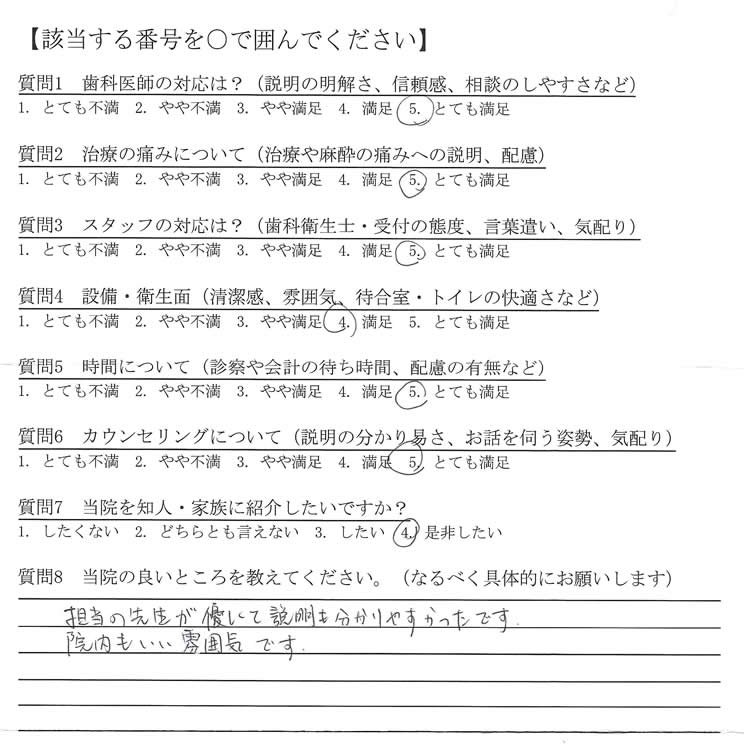 【該当する番号を○で囲んでください】
質問1 歯科医師の対応は？（説明の明解さ、信頼感、相談のしやすさなど）
1. とても不満 2. やや不満 3. やや満足 4. 満足 5. とても満足
質問2 治療の痛みについて（治療や麻酔の痛みへの説明、配慮）
1. とても不満 2. やや不満 3. やや満足 4. 満足 5. とても満足
質問3 スタッフの対応は？（歯科衛生士・受付の態度、言葉遣い、気配り）
1. とても不満 2. やや不満 3. やや満足 4. 満足 5. とても満足
質問4 設備・衛生面（清潔感、雰囲気、待合室・トイレの快適さなど）
1. とても不満 2. やや不満 3. やや満足 4. 満足 5. とても満足
質問5 時間について（診察や会計の待ち時間、配慮の有無など）
1. とても不満 2. やや不満 3. やや満足 4. 満足 5. とても満足
質問6 カウンセリングについて（説明の分かり易さ、お話を伺う姿勢、気配り）
1. とても不満 2. やや不満 3. やや満足 4. 満足 5. とても満足
質問7 当院を知人・家族に紹介したいですか？
1. したくない 2. どちらとも言えない 3. したい 4. 是非したい
質問8 当院の良いところを教えてください。（なるべく具体的にお願いします）
担当の先生が優しくて説明も分かりやすかったです.
院内もいい雰囲気です.